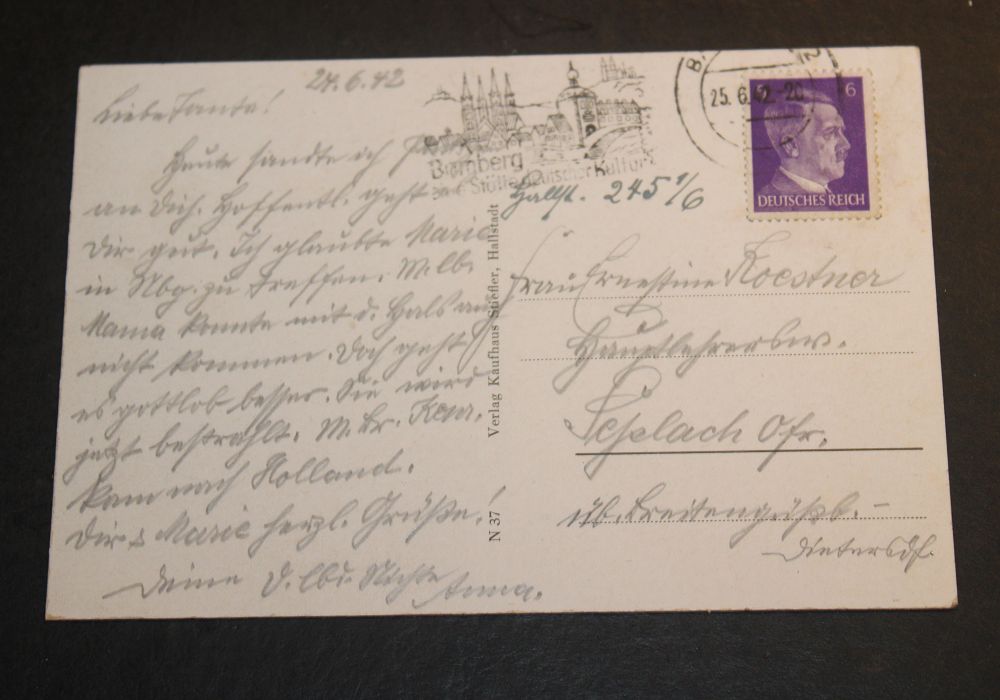 24.6.42
Liebe Tante!
Heute sandte ich
an Dich. Hoffentl. geht es
Dir gut. Ich glaubte Marie
in Nbg. zu treffen. M. lb.
Mama konnte mit d. Hals auch
nicht kommen. Doch geht
es gottlob besser. Sie wird
jetzt bestrahlt. M. Br.
kam nach Holland.
Dir & Marie herzl. Grüße!
Deine Nichte Anna.
Verlag Kaufhaus Stiefler, Hallstadt
N 37
Bamberg
Stätte deutscher Kultur
25.6.42.-20
6
DEUTSCHES REICH
Hallst. 245 1/6
Frau Ernestine Koestner
Hauptlehrersw.
Seßlach Ofr.
üb. Breitengüßb. –
Dietersdf.